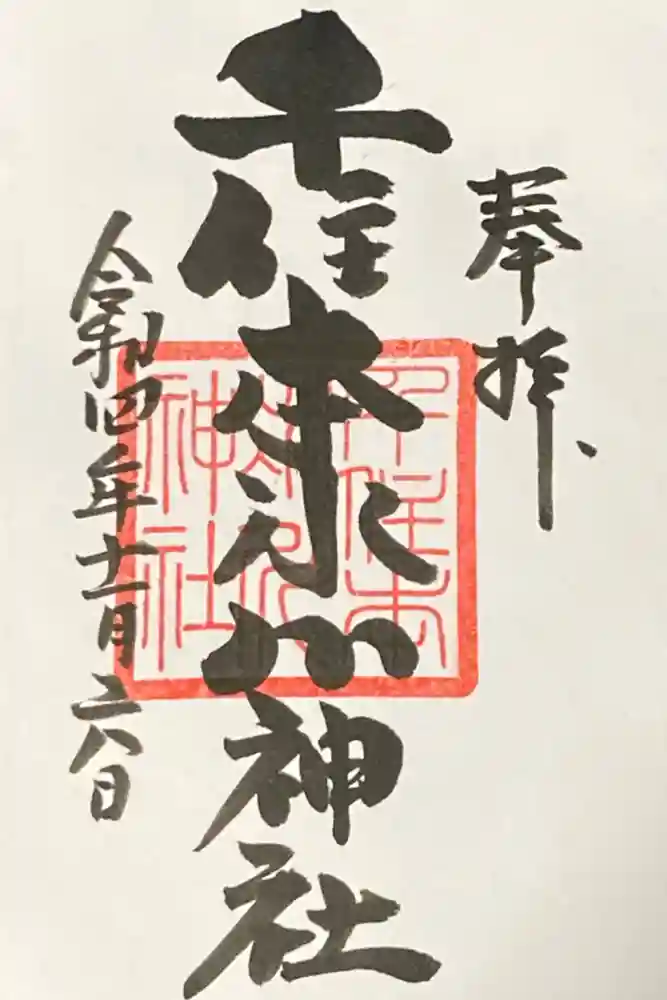 奉拝
千住本氷川神社
千住本
氷川
神社
令和四年十一月二八日